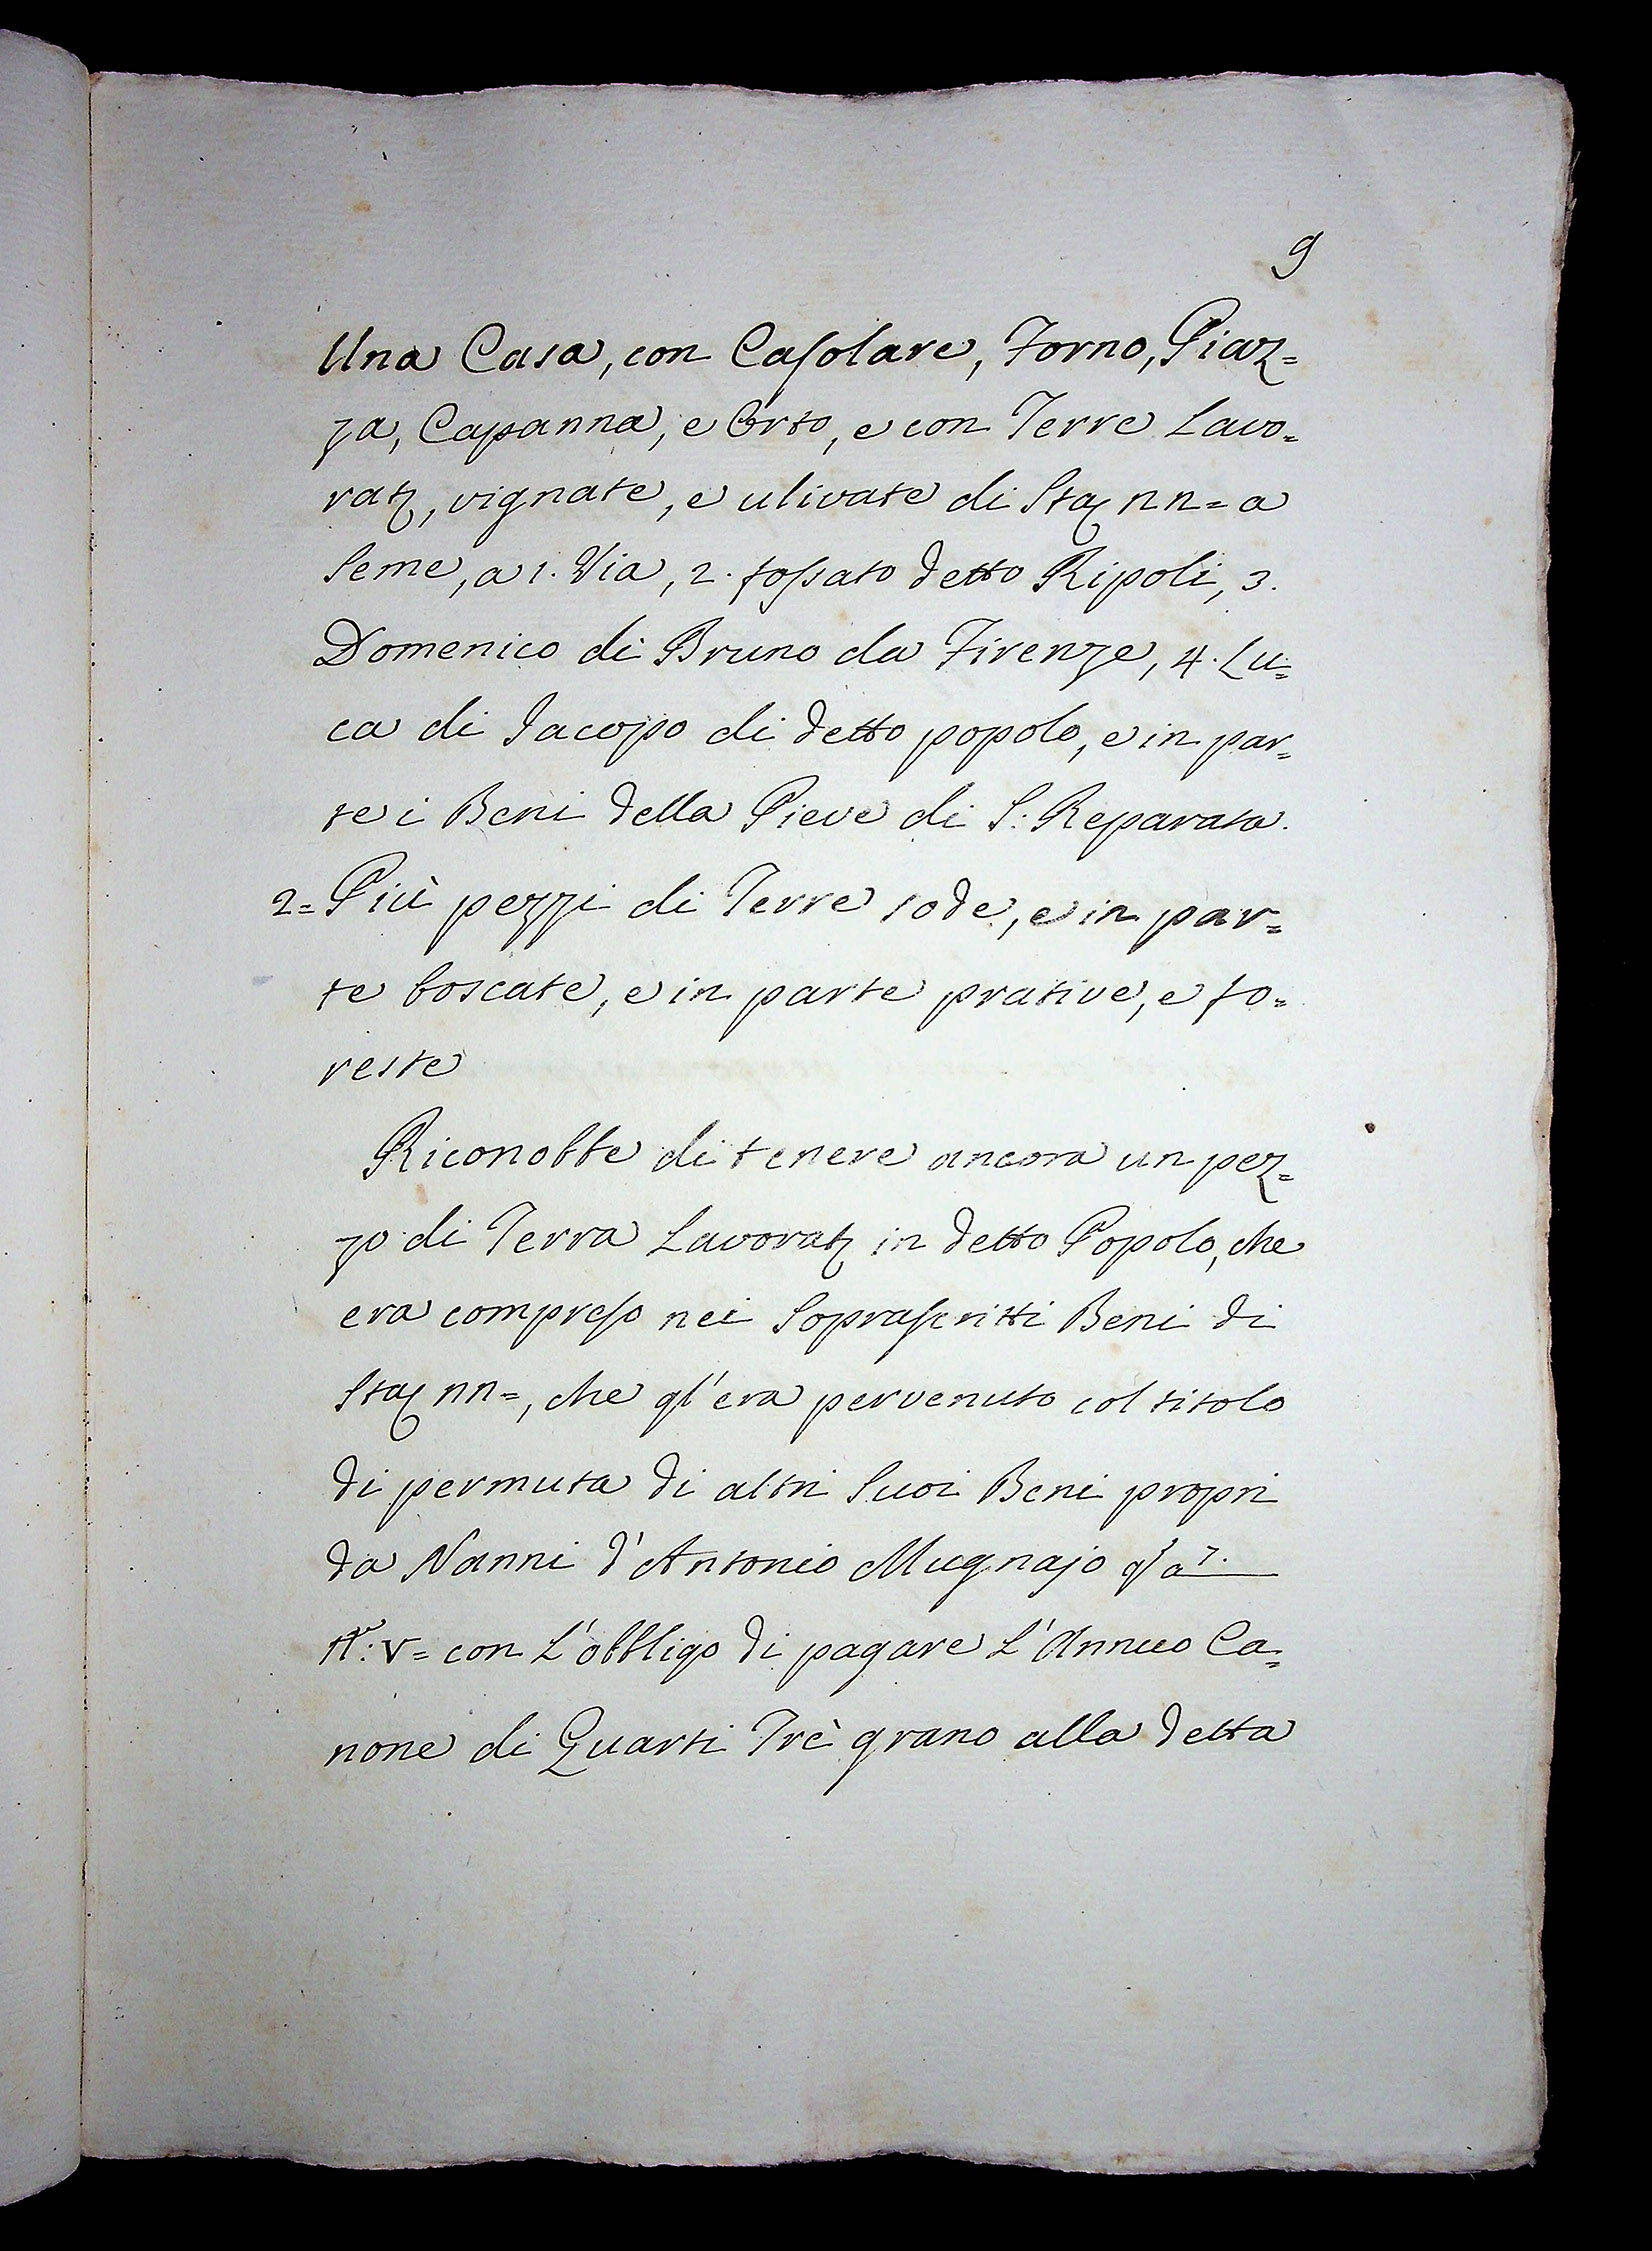 9
Una Casa, con Casolare, Forno, Piaz=
za, Capanna, e Orto, e con Terre Lavo=
rat, vignate, e ulivate di Sta nn= a
Seme, a 1. Via, 2. fossato detto Ripoli, 3.
Domenico di Bruno da Firenze, 4. Lu=
ca di Jacopo di detto popolo, e in par=
te i Beni della Pieve di S: Reparata.
2= Più pezzi di Terre sode, e in par=
te boscate, e in parte prative, e fo=
reste
Riconobbe di tenere ancora un pez=
zo di Terra Lavorat in detto Popolo, che
era compreso nei Soprascritti Beni di
Sta nn=, che gl'era pervenuto col titolo
di permuta di altri Suoi Beni propri
da Nanni d'Antonio Mugnajo
con L'obbligo di pagare L'Annuo Ca=
none di Quarti Trè grano alla detta